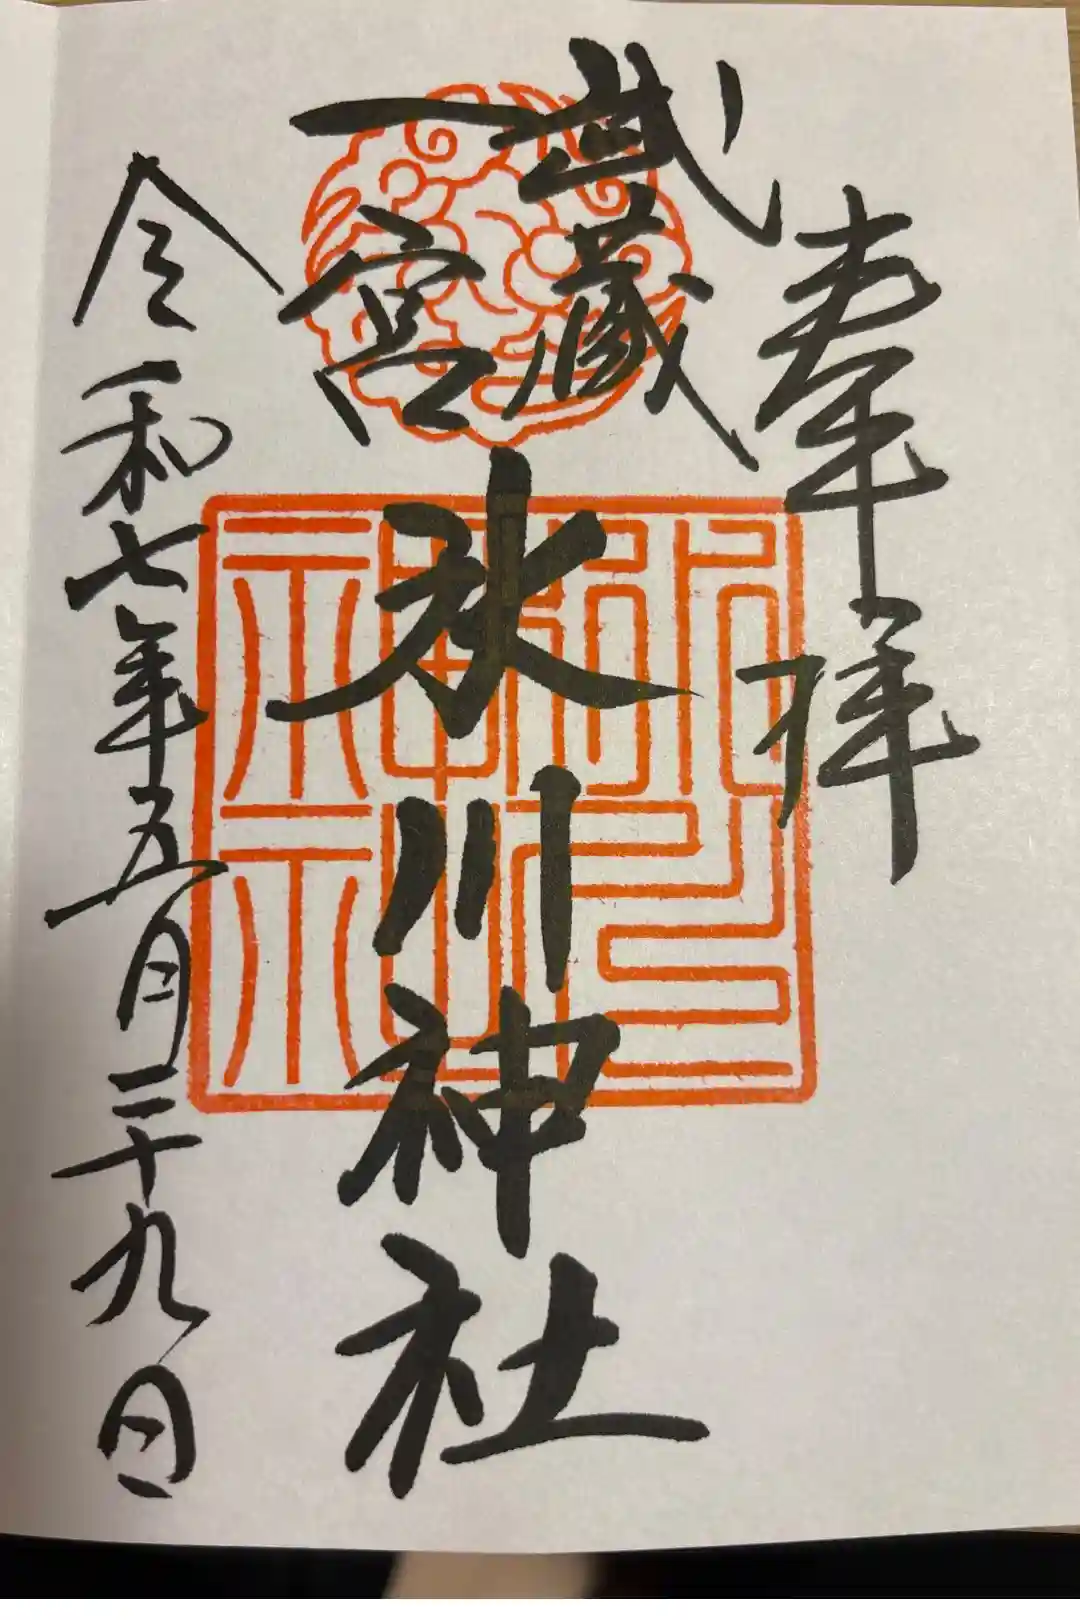 奉拝
武蔵
一宮
氷川神社
令和七年五月二十九日